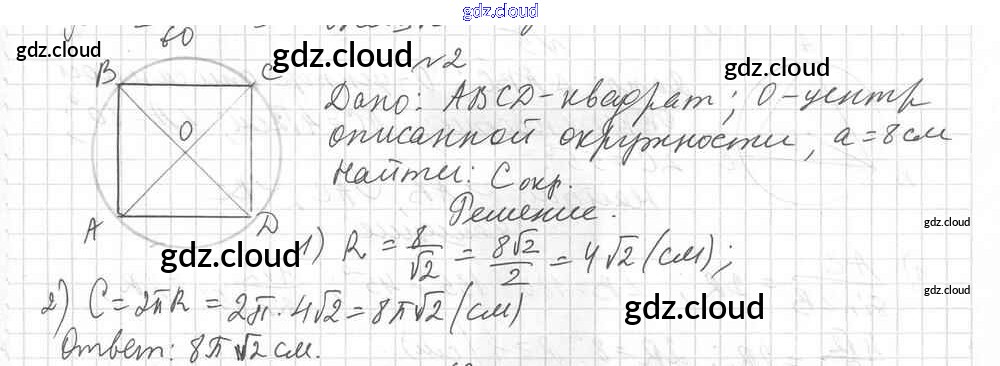 gdz.cloud
60 =
gdz.cloud gdz.cloud №2 gdz.cloud
B C
Дано: ABCD-квадрат; O-центр
O
описанной окружности, a=8см
Найти: C окр.
A D
Решение.
gdz.cloud
gdz.cloud
1) R = 8/√2 = 8√2/2 = 4√2 (см);
gdz.cloud
2) C = 2πR = 2π · 4√2 = 8π√2 (см)
gdz.cloud
Ответ: 8π√2 см.